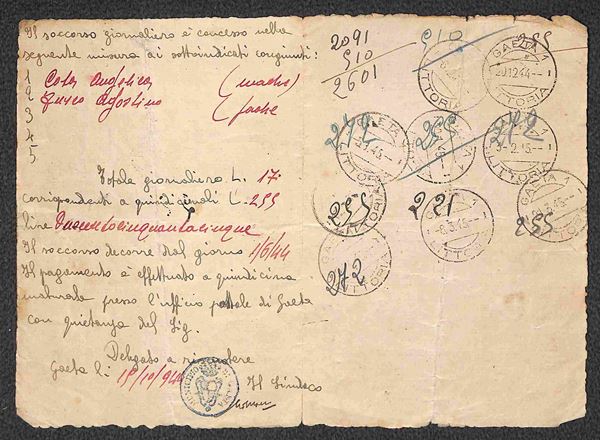 Il soccorso giornaliero è concesso nella
seguente misura ai sottoindicati congiunti:
1 Cola Angelica (madre)
2 Agostino (padre
3
4
5
Totale giornaliero L. 17
corrispondenti a quindicinali L. 255
lire Duecentocinquantacinque
Il soccorso decorre dal giorno 1/6/44
Il pagamento è effettuato a quindicina
maturata presso l'ufficio postale di Gaeta
con quietanza del Sig.
Delegato a riscuotere
Gaeta li 18/10/944
Il Sindaco
2091
510
2601
510
255
GAETA 1
20.12.44
LITTORIA
272
255
272
GAETA 1
LITTORIA
255
221
GAETA 1
-8.3.45-
LITTORIA
255
GAETA 1
272
LITTORIA